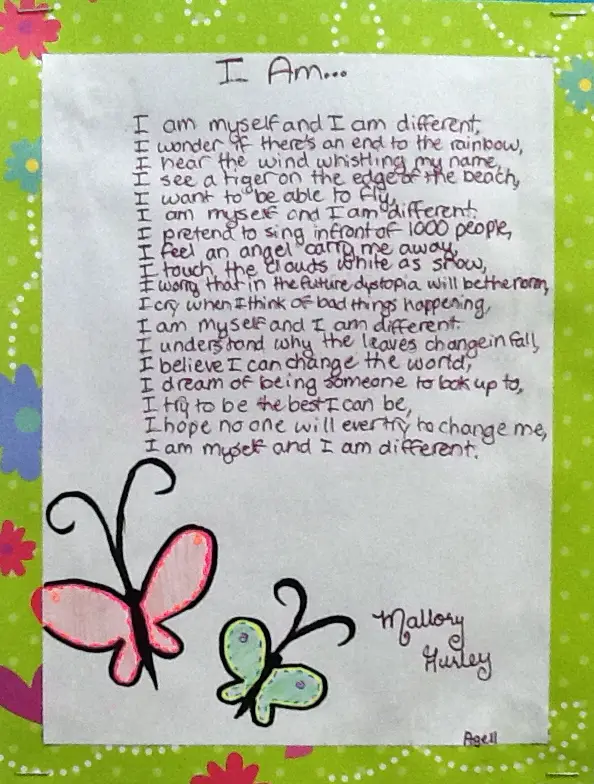 I Am...
I am myself and I am different,
I wonder if there's an end to the rainbow,
I hear the wind whistling my name,
I see a tiger on the edge of the beach,
I want to be able to fly,
I am myself and I am different.
I pretend to sing infront of 1000 people,
I feel an angel carry me away,
I touch the clouds white as snow,
I worry that in the future dystopia will be the norm,
I cry when I think of bad things happening,
I am myself and I am different.
I understand why the leaves change in fall,
I believe I can change the world,
I dream of being someone to look up to,
I try to be the best I can be,
I hope no one will ever try to change me,
I am myself and I am different.
Mallory
Gurley
Age 11